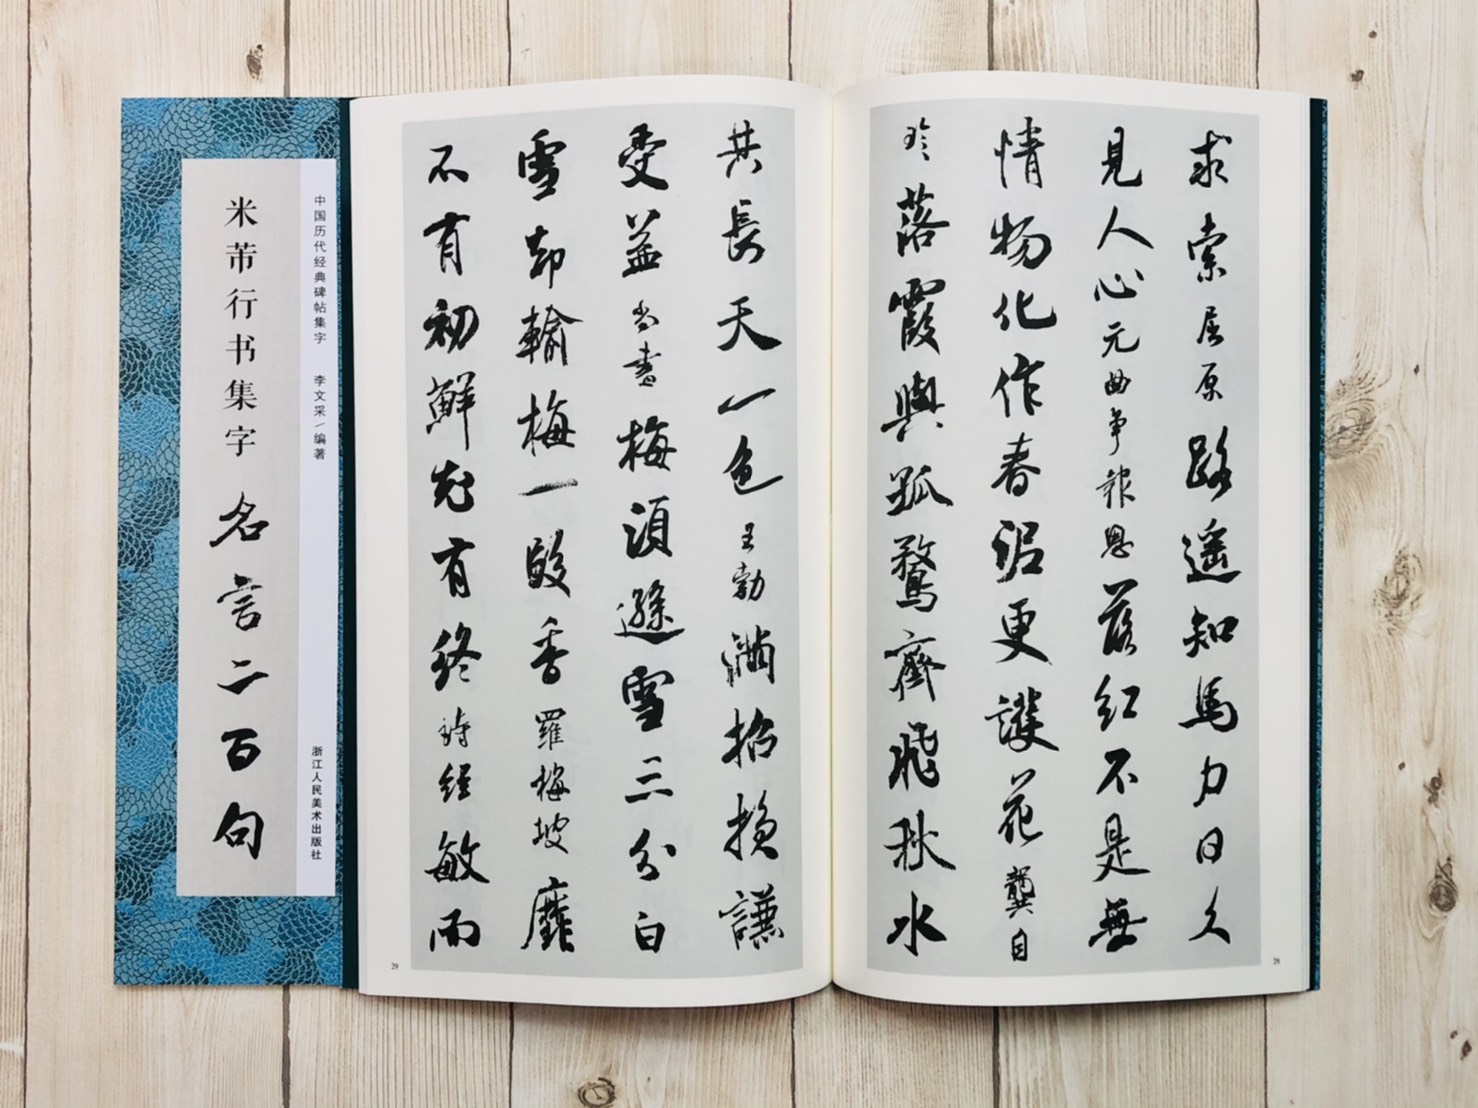 中国历代经典碑帖集字 李文采/编著 浙江人民美术出版社
米芾行书集字 名言二百句
求索屈原路遥知馬力日久
見人心元曲争報恩落红不是無
情物化作春泥更護花龔自
珍落霞與孤鶩齊飛秋水
28
共長天一色王勃滿招損謙
受益尚書梅須遜雪三分白
雪却輸梅一段香羅梅坡靡
不有初鮮克有終詩經敏而
29